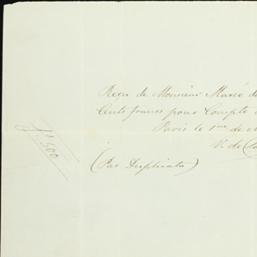 Reçu de Monsieur Marcé de
Cents francs pour Compte
Paris le 1er de
V. de
(Par Duplicata)
fs 500